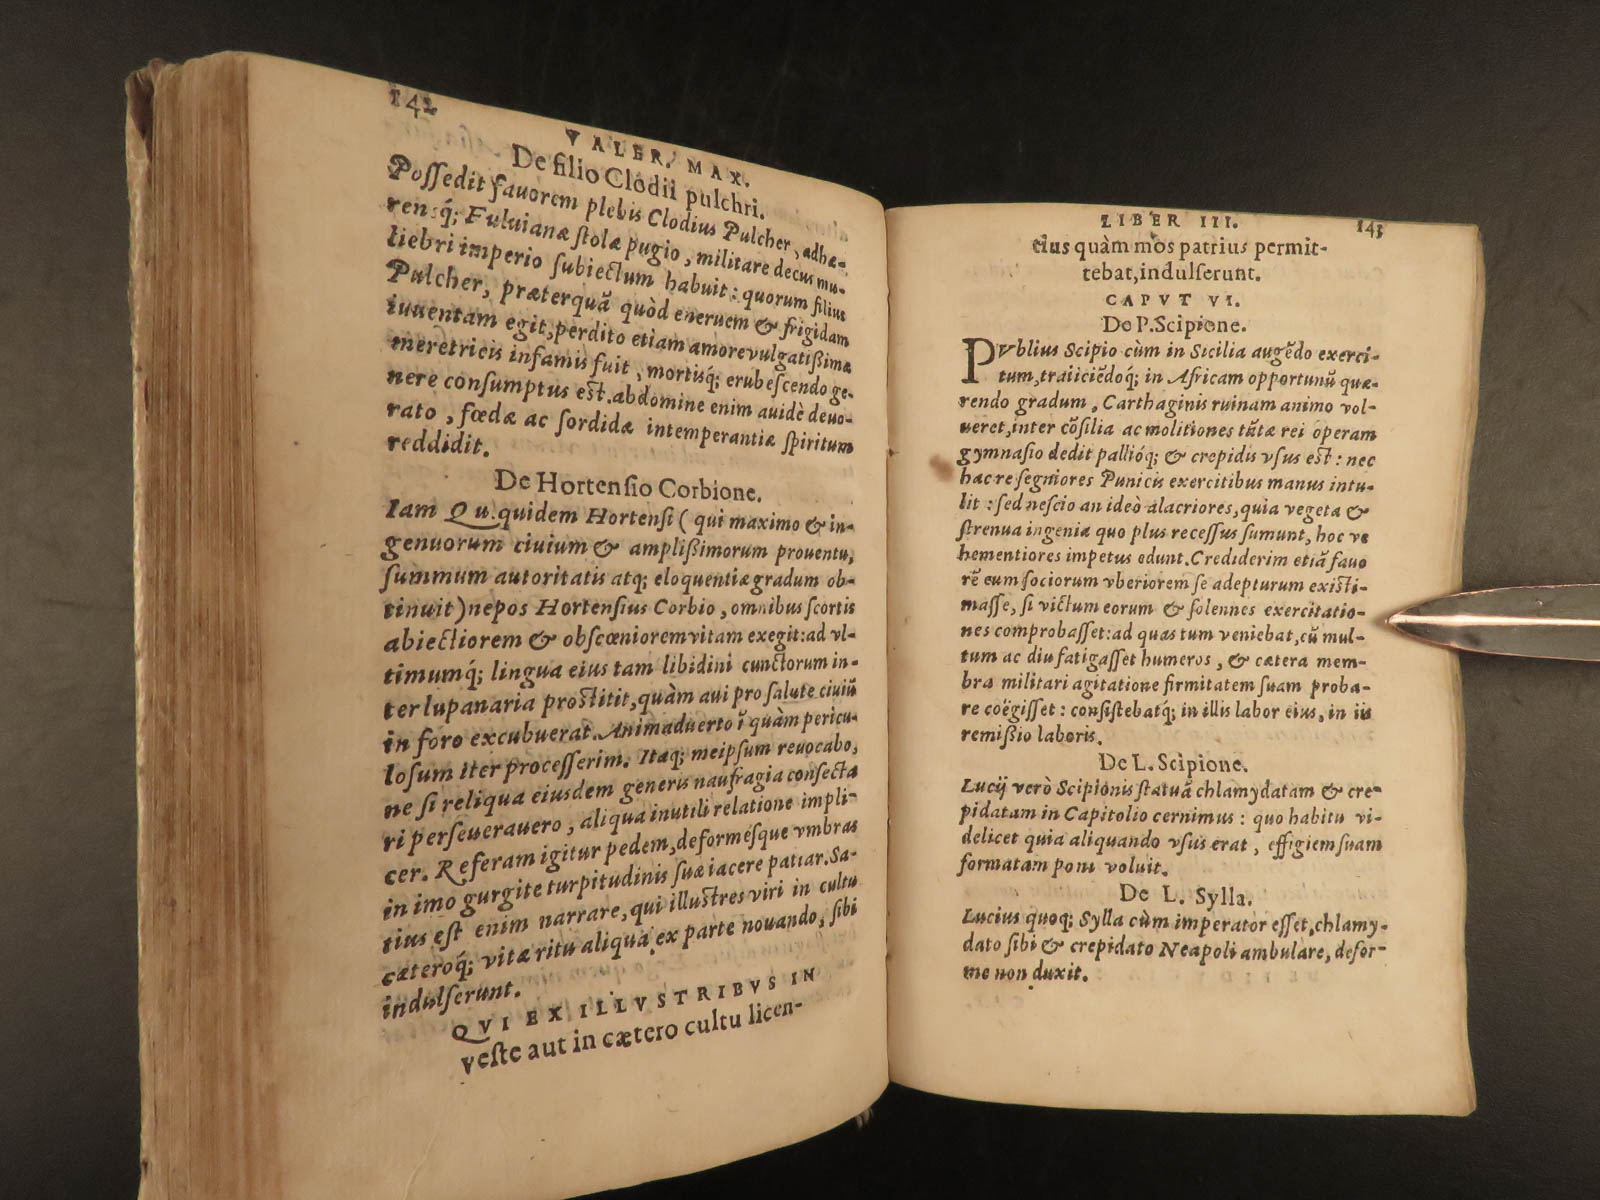 142
VALER. MAX.
De filio Clodii pulchri.
Possedit fauorem plebis Clodius Pulcher, adhæ-
rensq́; Fuluianæ stolæ pugio, militare decus mu-
liebri imperio subiectum habuit: quorum filius
Pulcher, præterquã quòd eneruem & frigidam
iuuentam egit, perdito etiam amore vulgatißimæ
meretricis infamis fuit, mortisq́; erubescendo ge-
nere consumptus est. abdomine enim auidè deuo-
rato, fœdæ ac sordidæ intemperantiæ spiritum
reddidit.
De Hortensio Corbione.
Iam Qu. quidem Hortensi (qui maximo & in-
genuorum ciuium & amplißimorum prouentu,
summum autoritatis atq; eloquentiæ gradum ob-
tinuit) nepos Hortensius Corbio, omnibus scortis
abiectiorem & obscœniorem vitam exegit: ad vl-
timumq́; lingua eius tam libidini cunctorum in-
ter lupanaria prostitit, quàm aui pro salute ciuiũ
in foro excubuerat. Animaduerto ĩ quàm pericu-
losum iter processerim. Itaq; meipsum reuocabo,
ne si reliqua eiusdem generis naufragia consecta
ri perseuerauero, aliqua inutili relatione impli-
cer. Referam igitur pedem, deformesque vmbras
in imo gurgite turpitudinis suæ iacere patiar. Sa-
tius est enim narrare, qui illustres viri in cultu
cæteroq́; vitæ ritu aliqua ex parte nouando, sibi
indulserunt.
QVI EX ILLVSTRIBVS IN
veste aut in cætero cultu licen-
LIBER III. 143
tius quàm mos patrius permit-
tebat, indulserunt.
CAPVT VI.
De P. Scipione.
PVblius Scipio cùm in Sicilia augẽdo exerci-
tum, traiiciẽdoq́; in Africam opportunũ quæ-
rendo gradum, Carthaginis ruinam animo vol-
ueret, inter cõsilia ac molitiones tãtæ rei operam
gymnasio dedit pallióq; & crepidis vsus est: nec
hac re segniores Punicis exercitibus manus intu-
lit: sed nescio an ideò alacriores, quia vegeta &
strenua ingenia quo plus recessus sumunt, hoc ve
hementiores impetus edunt. Crediderim etiã fauo
rẽ eum sociorum vberiorem se adepturum existi-
masse, si victum eorum & solennes exercitatio-
nes comprobasset: ad quas tum veniebat, cũ mul-
tum ac diu fatigasset humeros, & cætera mem-
bra militari agitatione firmitatem suam proba-
re coëgisset: consistebatq́; in illis labor eius, in iis
remißio laboris.
De L. Scipione.
Lucij verò Scipionis statuã chlamydatam & cre-
pidatam in Capitolio cernimus: quo habitu vi-
delicet quia aliquando vsus erat, effigiem suam
formatam poni voluit.
De L. Sylla.
Lucius quoq; Sylla cùm imperator esset, chlamy-
dato sibi & crepidato Neapoli ambulare, defor-
me non duxit.